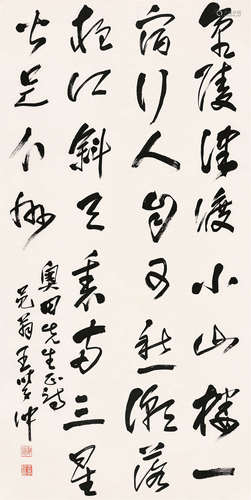 金陵津渡小山樓一
宿行人自可愁潮落
夜江斜月裏兩三星
火是瓜洲
奧田先生正
黽翁王學仲